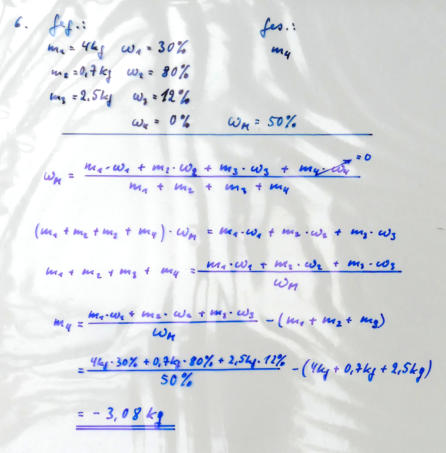 6. geg.: ges.:
m₁ = 4kg ω₁ = 30% m₄
m₂ = 0,7kg ω₂ = 80%
m₃ = 2.5kg ω₃ = 12%
ω₄ = 0% ω_M = 50%
ω_M = (m₁·ω₁ + m₂·ω₂ + m₃·ω₃ + m₄·ω₄ = 0) / (m₁ + m₂ + m₃ + m₄)
(m₁ + m₂ + m₃ + m₄)·ω_M = m₁·ω₁ + m₂·ω₂ + m₃·ω₃
m₁ + m₂ + m₃ + m₄ = (m₁·ω₁ + m₂·ω₂ + m₃·ω₃) / ω_M
m₄ = (m₁·ω₁ + m₂·ω₂ + m₃·ω₃) / ω_M - (m₁ + m₂ + m₃)
= (4kg·30% + 0,7kg·80% + 2,5kg·12%) / 50% - (4kg + 0,7kg + 2,5kg)
= - 3,08 kg